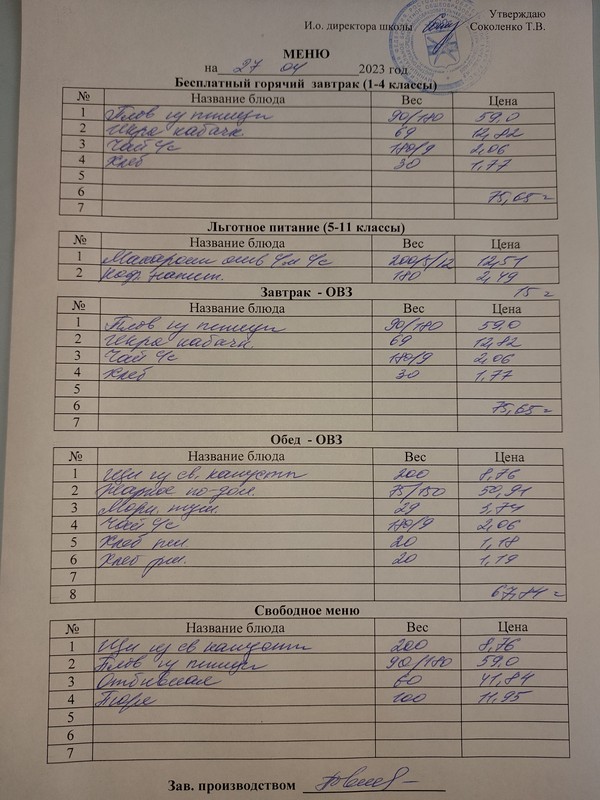 Утверждаю
И.о. директора школы Соколенко Т.В.
МЕНЮ
на 27 04 2023 год
Бесплатный горячий завтрак (1-4 классы)
№ Название блюда Вес Цена
1 Плов из птицы 90/180 59,0
2 Икра кабачк 69 12,82
3 Чай с/с 180/9 2,06
4 Хлеб 30 1,77
5
6 75,65 =
7
Льготное питание (5-11 классы)
№ Название блюда Вес Цена
1 Макароны отв с/м с/с 200/5/12 12,51
2 Коф. напит. 180 2,49
15 =
Завтрак - ОВЗ
№ Название блюда Вес Цена
1 Плов из птицы 90/180 59,0
2 Икра кабачк. 69 12,82
3 Чай с/с 180/9 2,06
4 Хлеб 30 1,77
5
6 75,65 =
7
Обед - ОВЗ
№ Название блюда Вес Цена
1 Щи из св. капусты 200 8,76
2 Жаркое по-дом. 75/150 50,91
3 29 3,74
4 Чай с/с 180/9 2,06
5 Хлеб пш. 20 1,18
6 Хлеб рж. 20 1,19
7
8 67,84 =
Свободное меню
№ Название блюда Вес Цена
1 Щи из св капусты 200 8,76
2 Плов из птицы 90/180 59,0
3 Отбивная 60 41,84
4 Пюре 100 11,95
5
6
7
Зав. производством